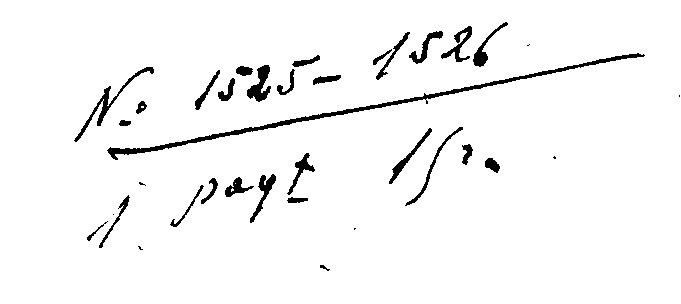 No 1525-1526
1. payt